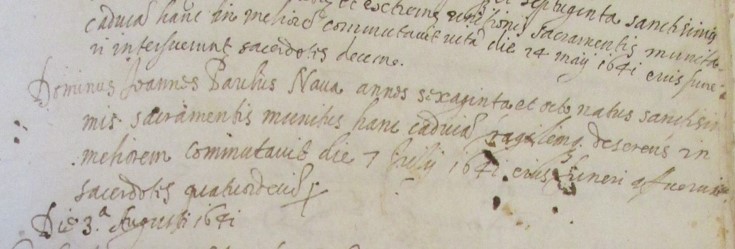 et extremæ unctionis sacramentis munita
septuaginta sanctissimis
caducā hanc in meliorē commutavit vitā die 24 may 1641 eius fune
ri interfuerunt sacerdotes decem.
Dominus Joannes Paulus Nava annos sexaginta et octo natus sanctissi
mis sacramentis munitus hanc caducā deserens in
meliorem commutavit die 7 Julij 1641 eius funeri
sacerdotes quatuordecim
Die 3.ª Augusti 1641